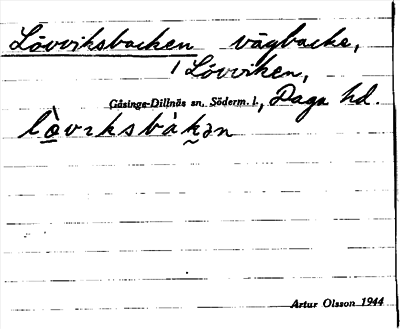 Lövviksbacken vägbacke,
i Lövviken,
Gåsinge-Dillnäs sn, Söderm. l., Daga hd.
lò̲vıksbàk̬ən
Artur Olsson 1944